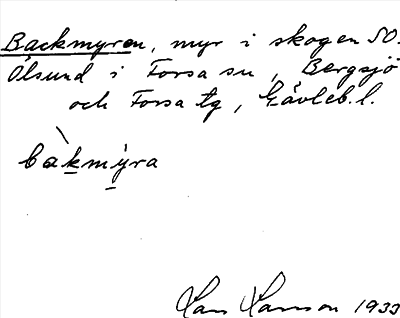 Backmyren, myr i skogen SO.
Ölsund i Forsa sn, Bergsjö
och Forsa tg, Gävleb. l.
bakmyra
Hans Hanson 1933